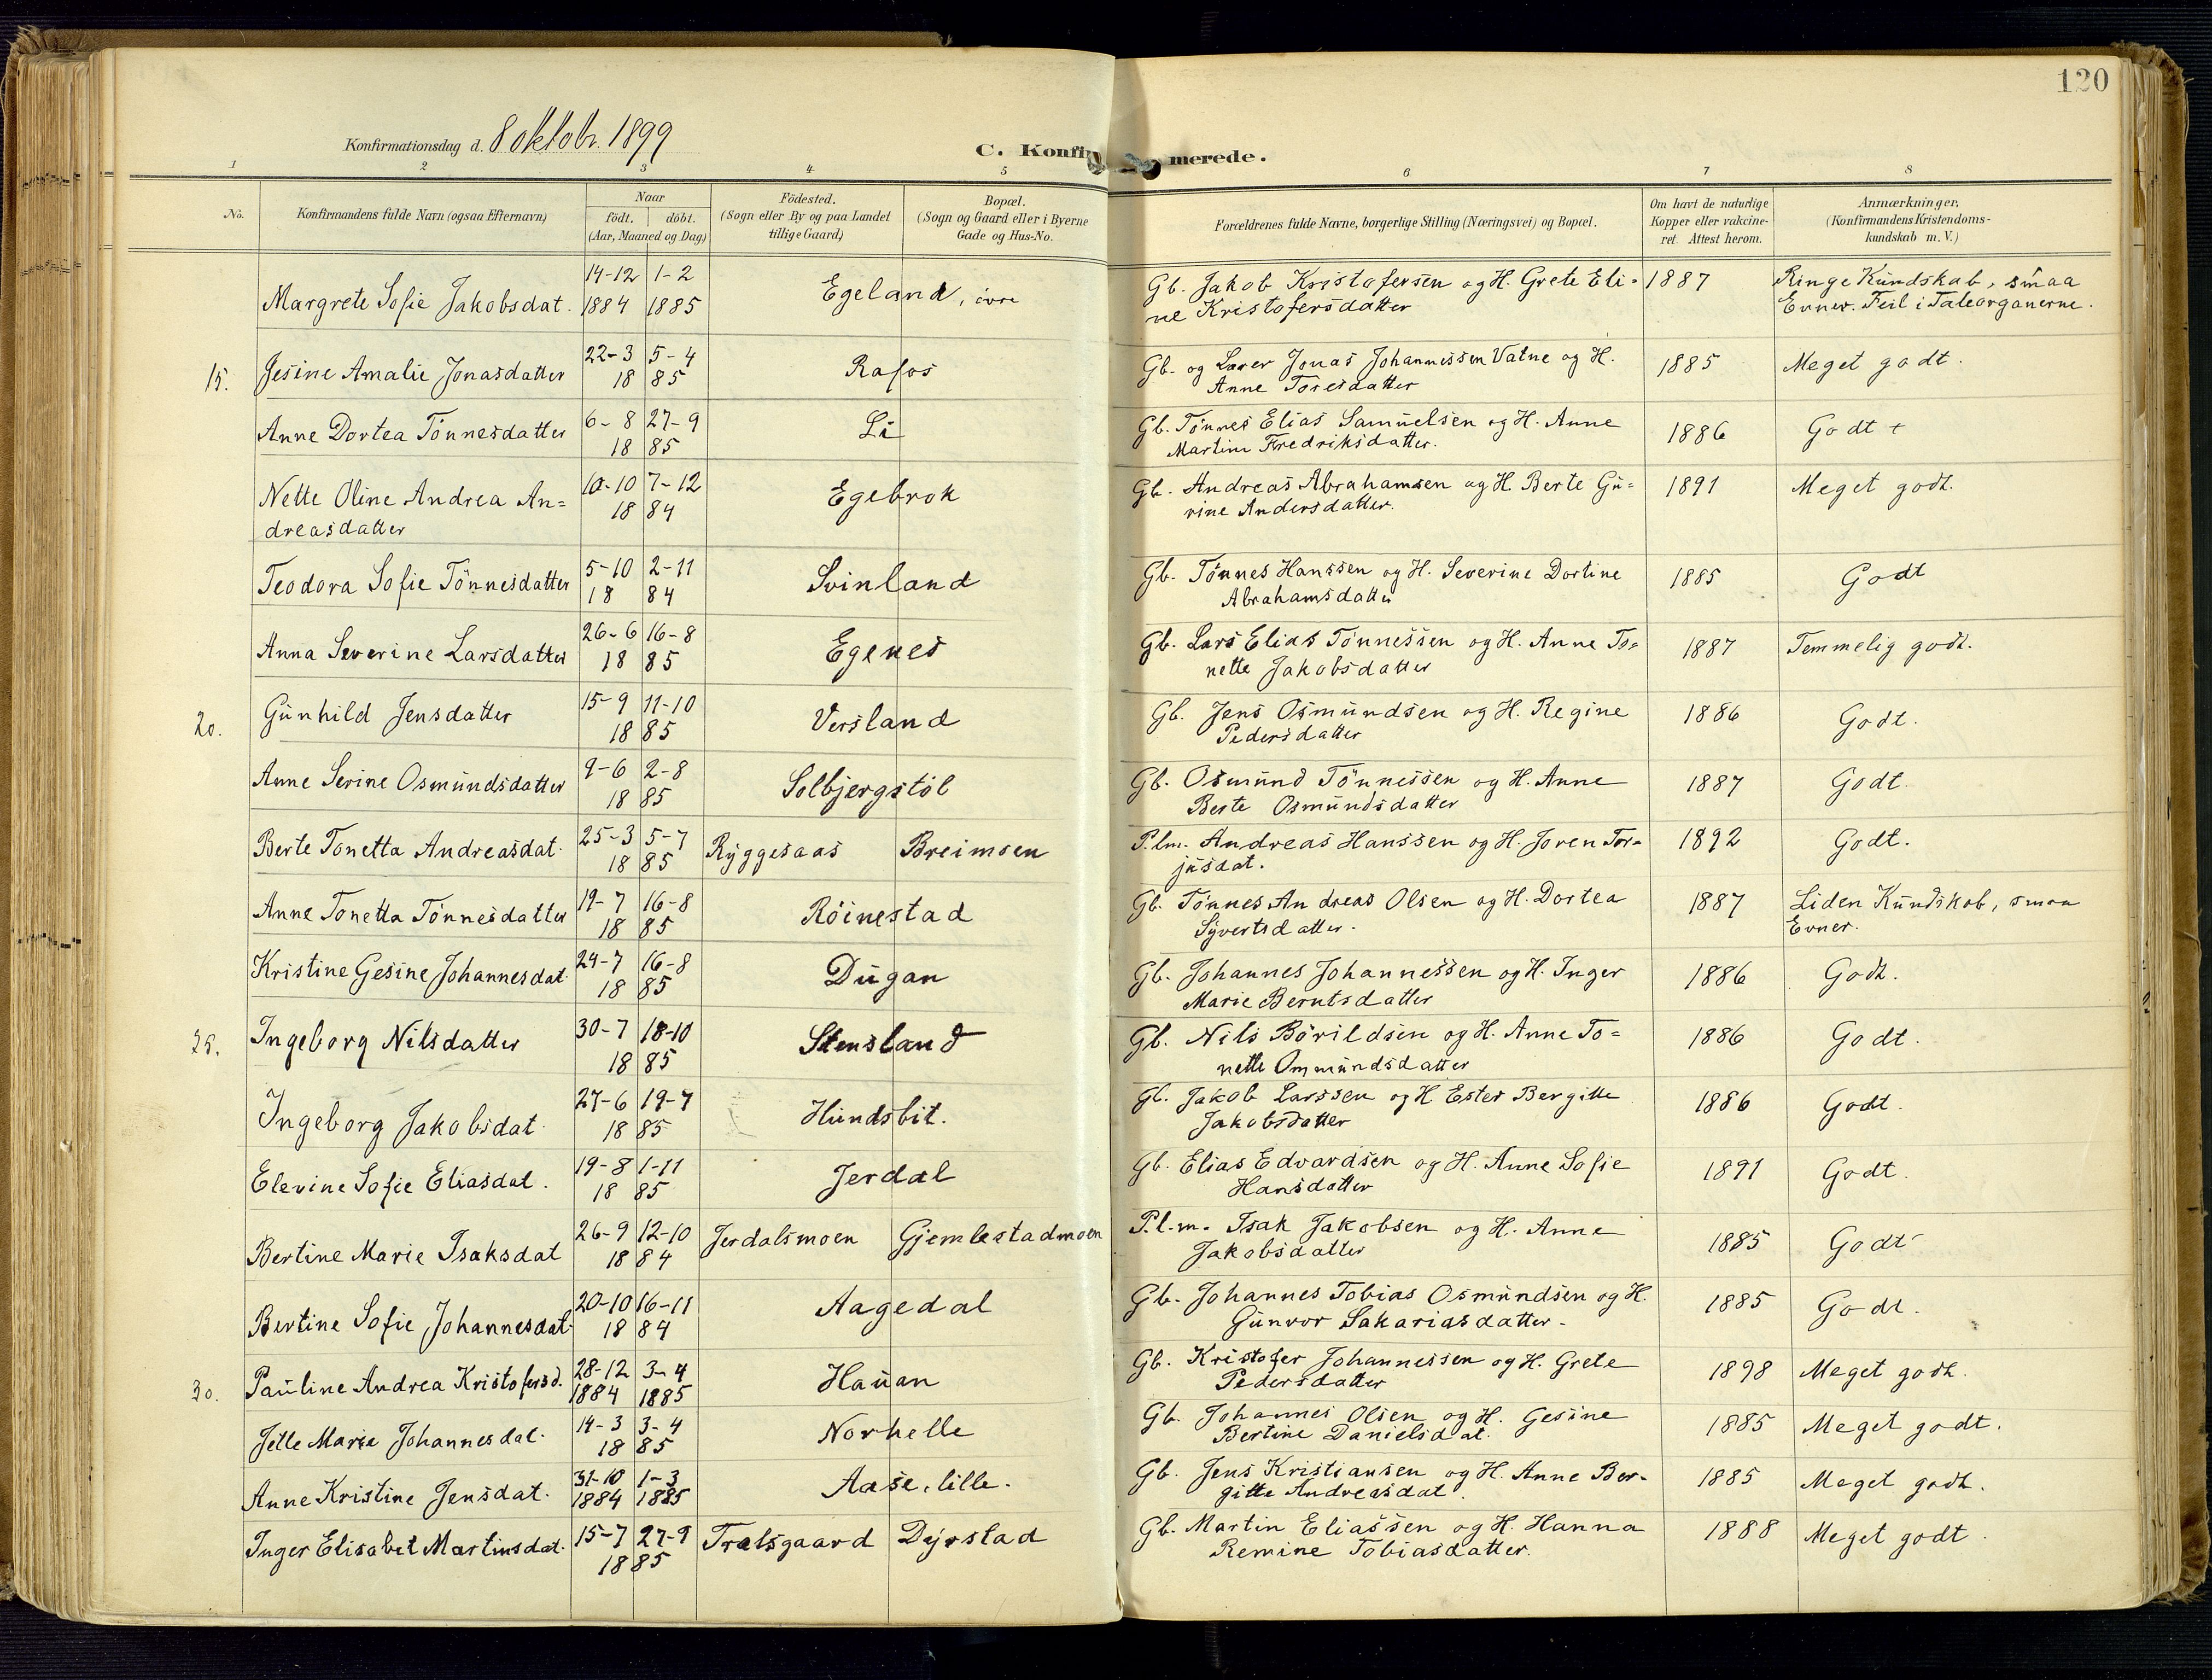 120
Konfirmationsdag d. 8 oktobr. 1899
C. Konfir merede.
1 2 3 4 5 6 7 8
No.
Konfirmandens fulde Navn (ogsaa Efternavn)
Naar
født. døbt.
(Aar, Maaned og Dag)
Fødested.
(Sogn eller By og paa Landet
tillige Gaard)
Bopæl.
(Sogn og Gaard eller i Byerne
Gade og Hus-No.
Forældrenes fulde Navne, borgerlige Stilling (Næringsvei) og Bopæl.
Om havt de naturlige
Kopper eller vakcine-
ret. Attest herom.
Anmærkninger.
(Konfirmandens Kristendoms-
kundskab m. V.)
14-12 1-2
Margrete Sofie Jakobsdat. 1884 1885 Egeland, øvre
Gb. Jakob Kristofersen og H. Grete Eli- 1887 Ringe Kundskab, smaa
ne Kristofersdatter Evner. Feil i Taleorganerne.
22-3 5-4
15. Jesine Amalie Jonasdatter 18 85 Rafos
Gb. og Lærer Jonas Johannessen Vatne og H. 1885 Meget godt.
Anne Toresdatter
6-8 27-9
Anne Dortea Tönnesdatter 18 85 Li
Gb. Tönnes Elias Samuelsen og H. Anne 1886 Godt +
Martine Fredriksdatter.
10-10 7-12
Nette Oline Andrea An= 18 84 Egebrok
dreasdatter
Gb. Andreas Abrahamsen og H. Berte Gu= 1891 Meget godt.
rine Andersdatter.
5-10 2-11
Teodora Sofie Tönnesdatter 18 84 Svinland
Gb. Tönnes Hanssen og H. Severine Dortine 1885 Godt
Abrahamsdatter
26-6 16-8
Anna Severine Larsdatter 18 85 Egenes
Gb. Lars Elias Tönnessen og H. Anne To= 1887 Temmelig godt.
nette Jakobsdatter
15-9 11-10
20. Gunhild Jensdatter 18 85 Versland
Gb. Jens Osmundsen og H. Regine 1886 Godt.
Pedersdatter
9-6 2-8
Anne Serine Osmundsdatter 18 85 Solbjergstöl
Gb. Osmund Tönnessen og H. Anne 1887 Godt.
Berte Osmundsdatter
25-3 5-7
Berte Tonetta Andreasdat. 18 85 Ryggesaas Breimoen
P.lm. Andreas Hanssen og H. Joren Tor= 1892 Godt.
jusdat.
19-7 16-8
Anne Tonetta Tönnesdatter 18 85 Röinestad
Gb. Tönnes Andreas Olsen og H. Dortea 1887 Liden Kundskab, smaa
Syvertsdatter. Evner.
24-7 16-8
Kristine Gesine Johannesdat. 18 85 Dugan
Gb. Johannes Johannessen og H. Inger 1886 Godt.
Marie Berntsdatter
30-7 18-10
25. Ingeborg Nilsdatter 18 85 Stensland
Gb. Nils Börildsen og H. Anne To= 1886 Godt.
nette Ommundsdatter
27-6 19-7
Ingeborg Jakobsdat. 18 85 Hundsbit.
Gb. Jakob Larssen og H. Ester Bergitte 1886 Godt.
Jakobsdatter
19-8 1-11
Elevine Sofie Eliasdat. 18 85 Jerdal
Gb. Elias Edvardsen og H. Anne Sofie 1891 Godt.
Hansdatter
26-9 12-10
Bertine Marie Isaksdat 18 84 Jerdalsmoen Gjemlestadmoen
P.l.m. Isak Jakobsen og H. Anne 1885 Godt
Jakobsdatter
20-10 16-11
Bertine Sofie Johannesdat. 18 84 Aagedal
Gb. Johannes Tobias Osmundsen og H. 1885 Godt.
Gunvor Sakariasdatter.
28-12 3-4
30. Pauline Andrea Kristofersd. 1884 1885 Hauan
Gb. Kristofer Johannessen og H. Grete 1898 Meget godt.
Pedersdatter
14-3 3-4
Jette Marie Johannesdat. 18 85 Norhelle
Gb. Johannes Olsen og H. Gesine 1885 Meget godt.
Bertine Danielsdat.
31-10 1-3
Anne Kristine Jensdat. 1884 1885 Aase, lille.
Gb. Jens Kristiansen og H. Anne Ber- 1885 Meget godt.
gitte Andreasdat.
15-7 27-9
Inger Elisabet Martinsdat. 18 85 Trælsgaard Dyrstad
Gb. Martin Eliassen og H. Hanna 1888 Meget godt.
Remine Tobiasdatter.